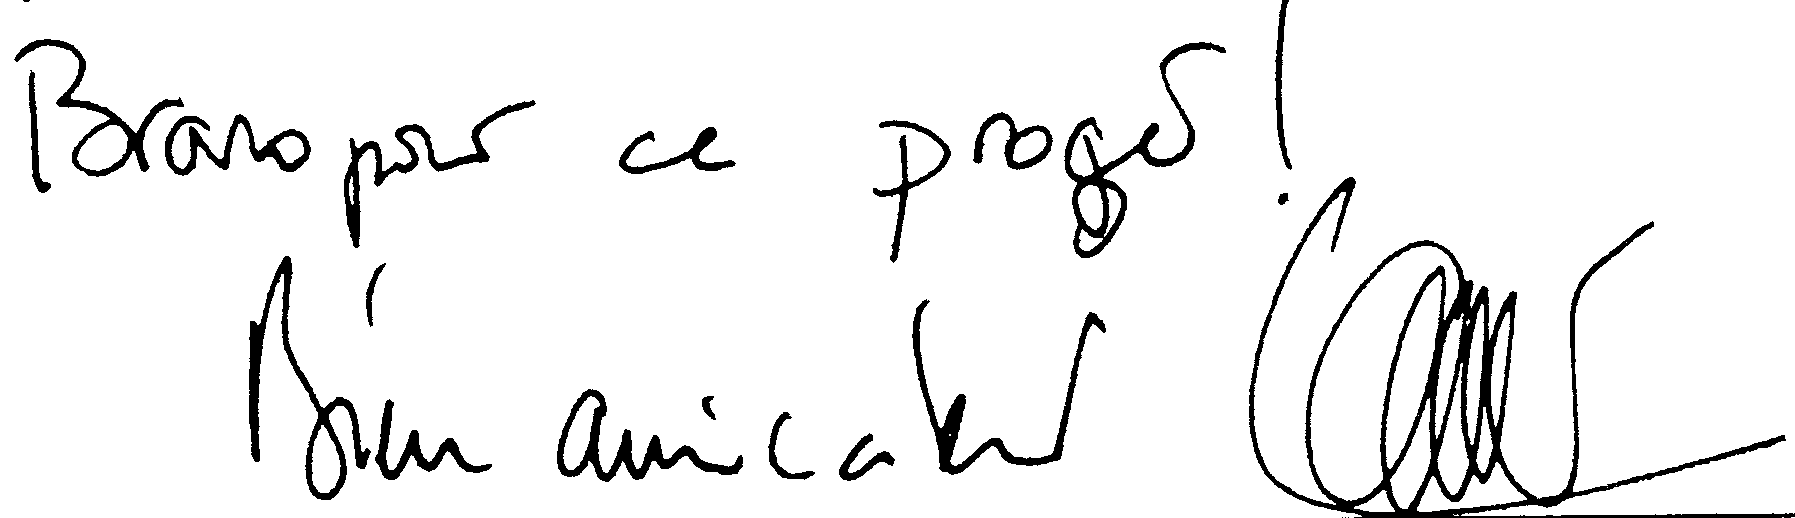 Bravo pour ce projet !
Bien amicalement